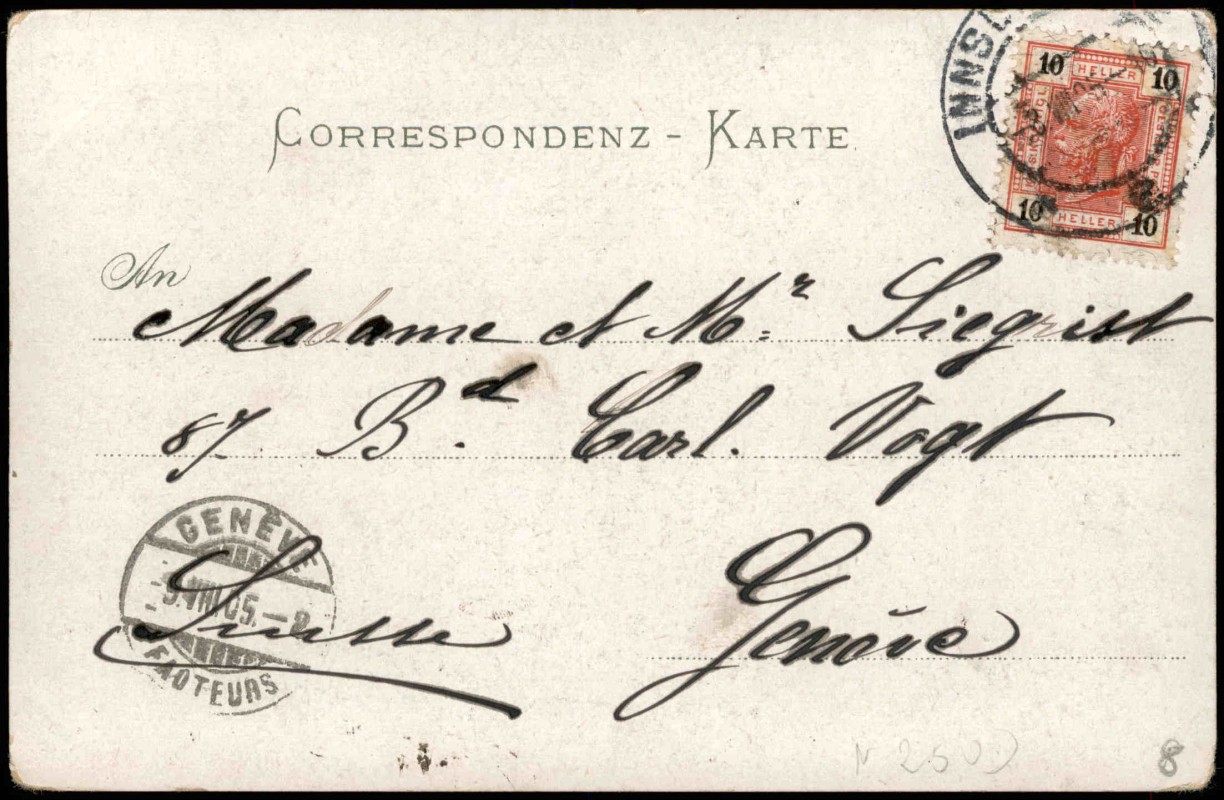 CORRESPONDENZ - KARTE
10 HELLER 10
10 HELLER 10
An
Madame et Mr Siegrist
87 Bd. Carl. Vogt
Genève
Suisse
GENÈVE
VIII.05.
FACTEURS
8